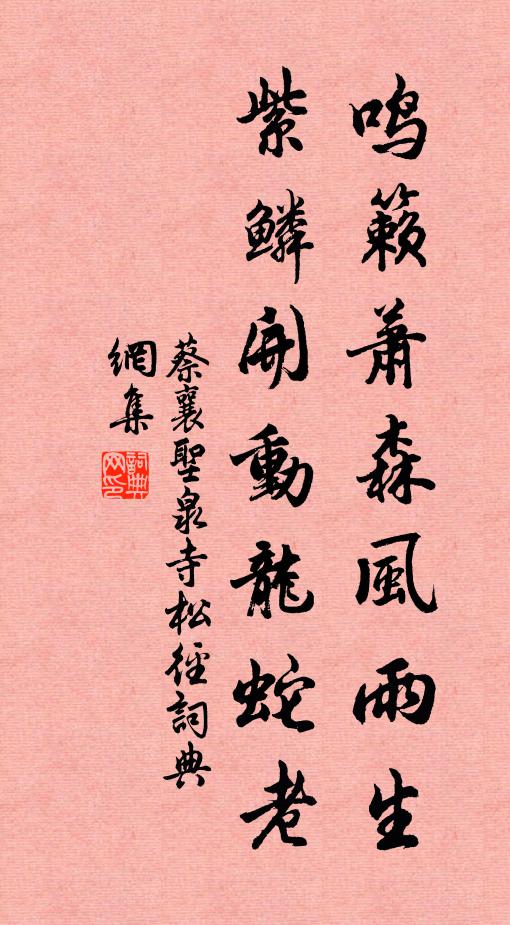 鳴籟蕭森風雨生
紫鱗開動龍蛇老
蔡襄聖泉寺松徑詞典
網集
詞典
网印